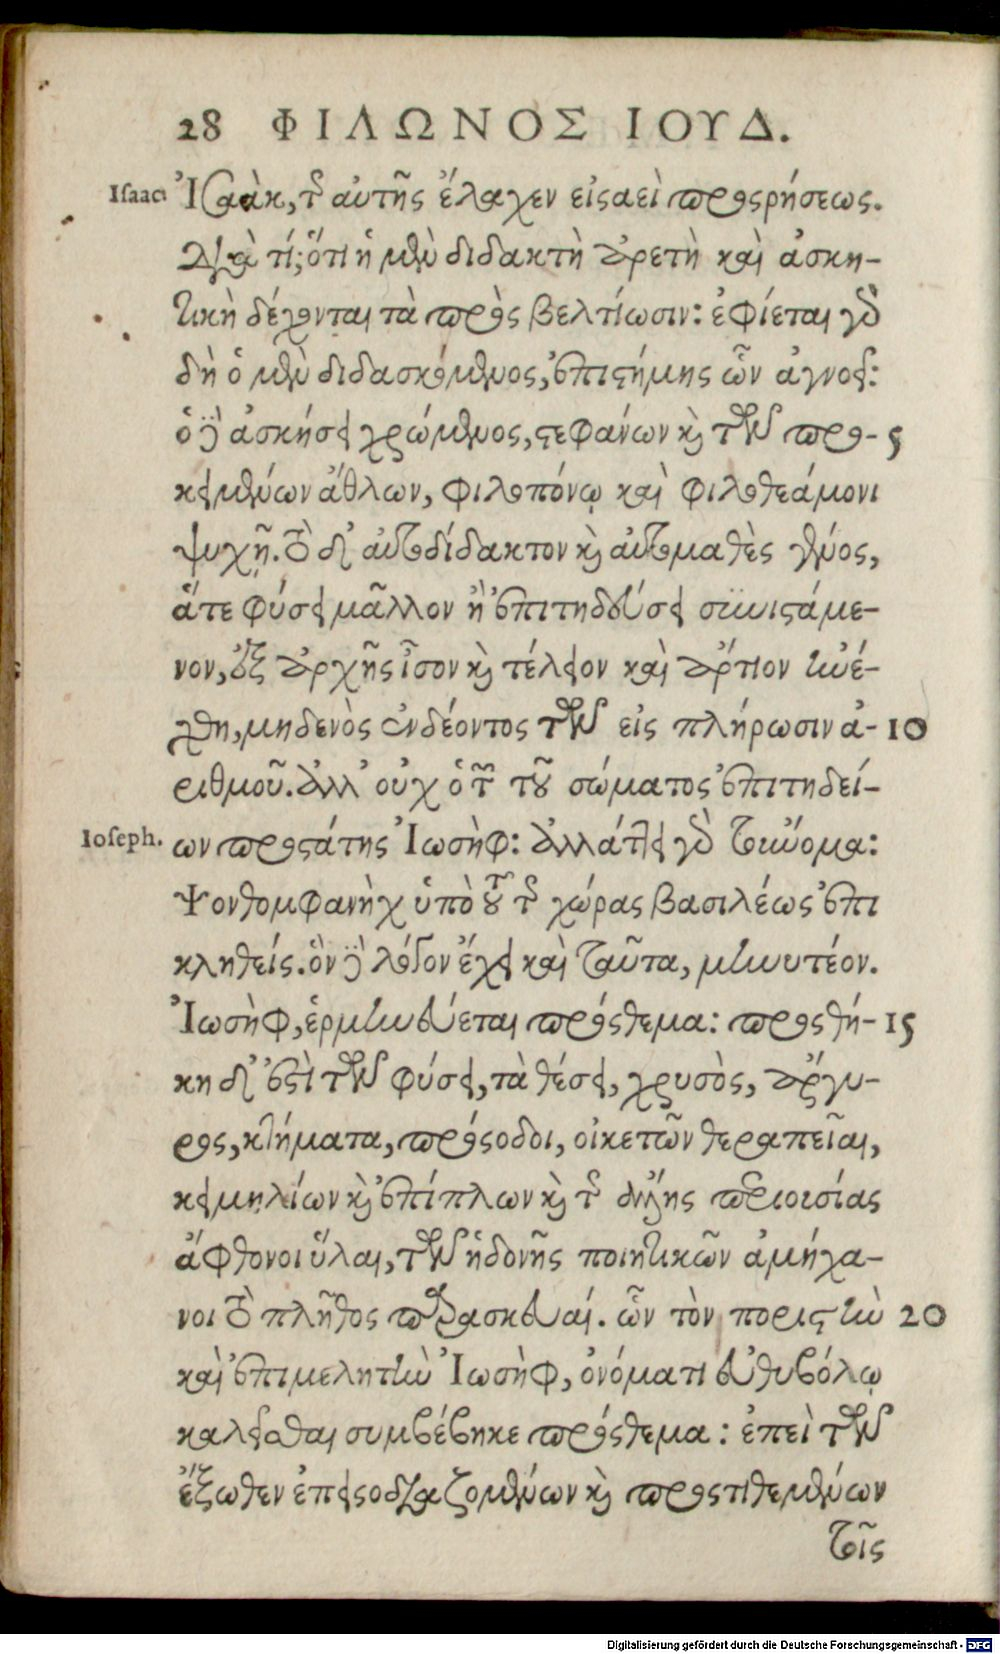 28 ΦΙΛΩΝΟΣ ΙΟΥΔ.
Isaac. Ἰσαὰκ, τῆς αὐτῆς ἔλαχεν εἰσαεὶ προςρήσεως.
Διὰ τί; ὅτι ἡ μὲν διδακτὴ ἀρετὴ καὶ ἀσκη-
τικὴ δέχονται τὰ πρὸς βελτίωσιν: ἐφίεται γὰρ
δὴ ὁ μὲν διδασκόμενος, ἐπιστήμης ὧν ἀγνοεῖ:
ὁ δὲ ἀσκήσει χρώμενος, στεφάνων καὶ τῶν προ- 5
κειμένων ἄθλων, φιλοπόνῳ καὶ φιλοθεάμονι
ψυχῇ. τὸ δὲ αὐτοδίδακτον καὶ αὐτομαθὲς γένος,
ἅτε φύσει μᾶλλον ἢ ἐπιτηδεύσει συνιστάμε-
νον, ἐξ ἀρχῆς ἶσον καὶ τέλειον καὶ ἄρτιον ἠνέ-
χθη, μηδενὸς ἐνδέοντος τῶν εἰς πλήρωσιν ἀ- 10
ριθμοῦ. Ἀλλ' οὐχ ὁ τῶν τοῦ σώματος ἐπιτηδεί-
Ioseph. ων προστάτης Ἰωσὴφ: ἀλλάττει γὰρ τοὔνομα:
Ψονθομφανὴχ ὑπὸ τοῦ τῆς χώρας βασιλέως ἐπι
κληθείς. ὃν δὲ λόγον ἔχει καὶ ταῦτα, μηνυτέον.
Ἰωσὴφ, ἑρμηνεύεται πρόςθεμα: προςθή- 15
κη δὲ ἐστὶ τῶν φύσει, τὰ θέσει, χρυσὸς, ἄργυ-
ρος, κτήματα, πρόσοδοι, οἰκετῶν θεραπεῖαι,
κειμηλίων καὶ ἐπίπλων καὶ τῆς ἄλλης περιουσίας
ἄφθονοι ὕλαι, τῶν ἡδονῆς ποιητικῶν ἀμήχα-
νοι τὸ πλῆθος παρασκευαί. ὧν τὸν ποριστὴν 20
καὶ ἐπιμελητὴν Ἰωσὴφ, ὀνόματι εὐθυβόλῳ
καλεῖσθαι συμβέβηκε πρόςθεμα: ἐπεὶ τῶν
ἔξωθεν ἐπεισοδιαζομένων καὶ προςτιθεμένων
τοῖς
Digitalisierung gefördert durch die Deutsche Forschungsgemeinschaft - DFG